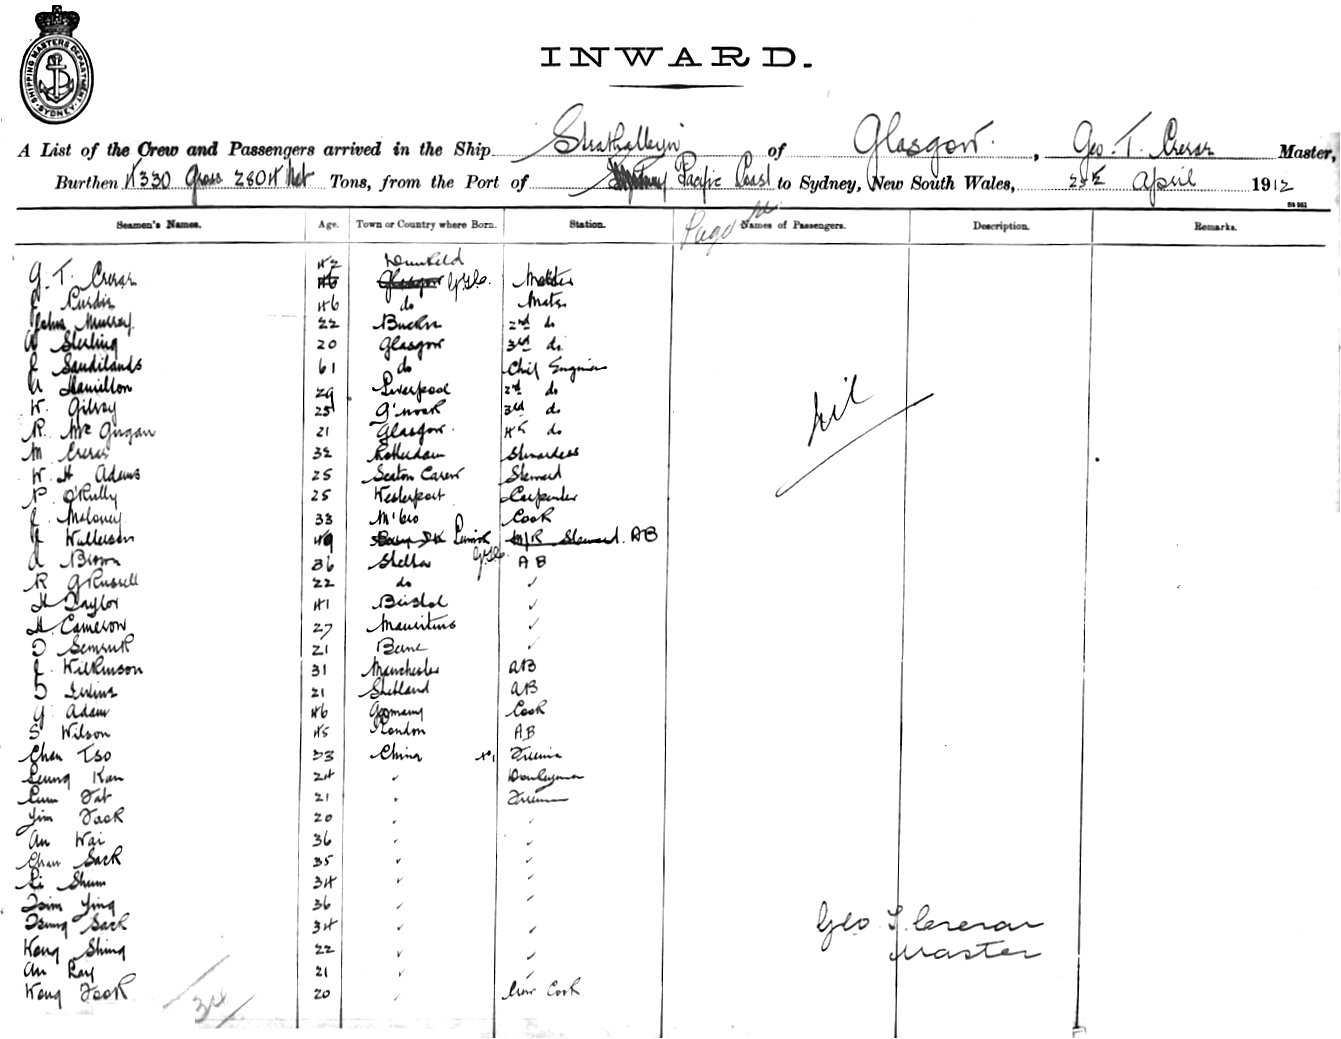 SHIPPING MASTERS DEPARTMENT SYDNEY
INWARD.
A List of the Crew and Passengers arrived in the Ship Strathalleyn of Glasgow, Geo. T. Crerar Master,
Burthen 4330 Gross 2804 Net Tons, from the Port of Pacific Coast to Sydney, New South Wales, 25th April 1912
Seamen's Names. Age. Town or Country where Born. Station. Names of Passengers. Description. Remarks.
G. T. Crerar 42 Glasgow G.T.C. Master
J Purdie 46 do Mate
John Murray 22 2nd do
Sterling 20 Glasgow 3rd do
J Sandilands 61 do Chief Engineer
Hamilton 29 Liverpool 2nd do
W. Gilroy 25 G'nock 3rd do
R. McGugan 21 Glasgow 4th do
M Crerar 32 Rotterdam Stewardess
W. H Adams 25 Seaton Carew Steward
P O'Reilly 25 Westerport Carpenter
J Maloney 33 M'bro Cook
49 Steward AB
A Brown 36 G.T.C. AB
R G Russell 22 do ✓
H Taylor 41 Bristol ✓
H. Cameron 27 Mauritius ✓
21 ✓
J. Wilkinson 31 Manchester AB
21 Shetland AB
G Adam 46 Germany Cook
S Wilson 45 London AB
Chan Tso 33 China No 1 Fireman
Leung Kan 24 " Donkeyman
Lum Fat 21 " Fireman
Yim Fook 20 " "
Au Wai 36 " "
Chan Sack 35 " "
Li Shum 34 " "
Tsim Ying 36 " "
Tsung Sack 34 " "
Kong Shing 22 " "
Au Ray 21 " "
Kong Fook 20 " Crew Cook
nil
Geo T. Crerar
Master
34